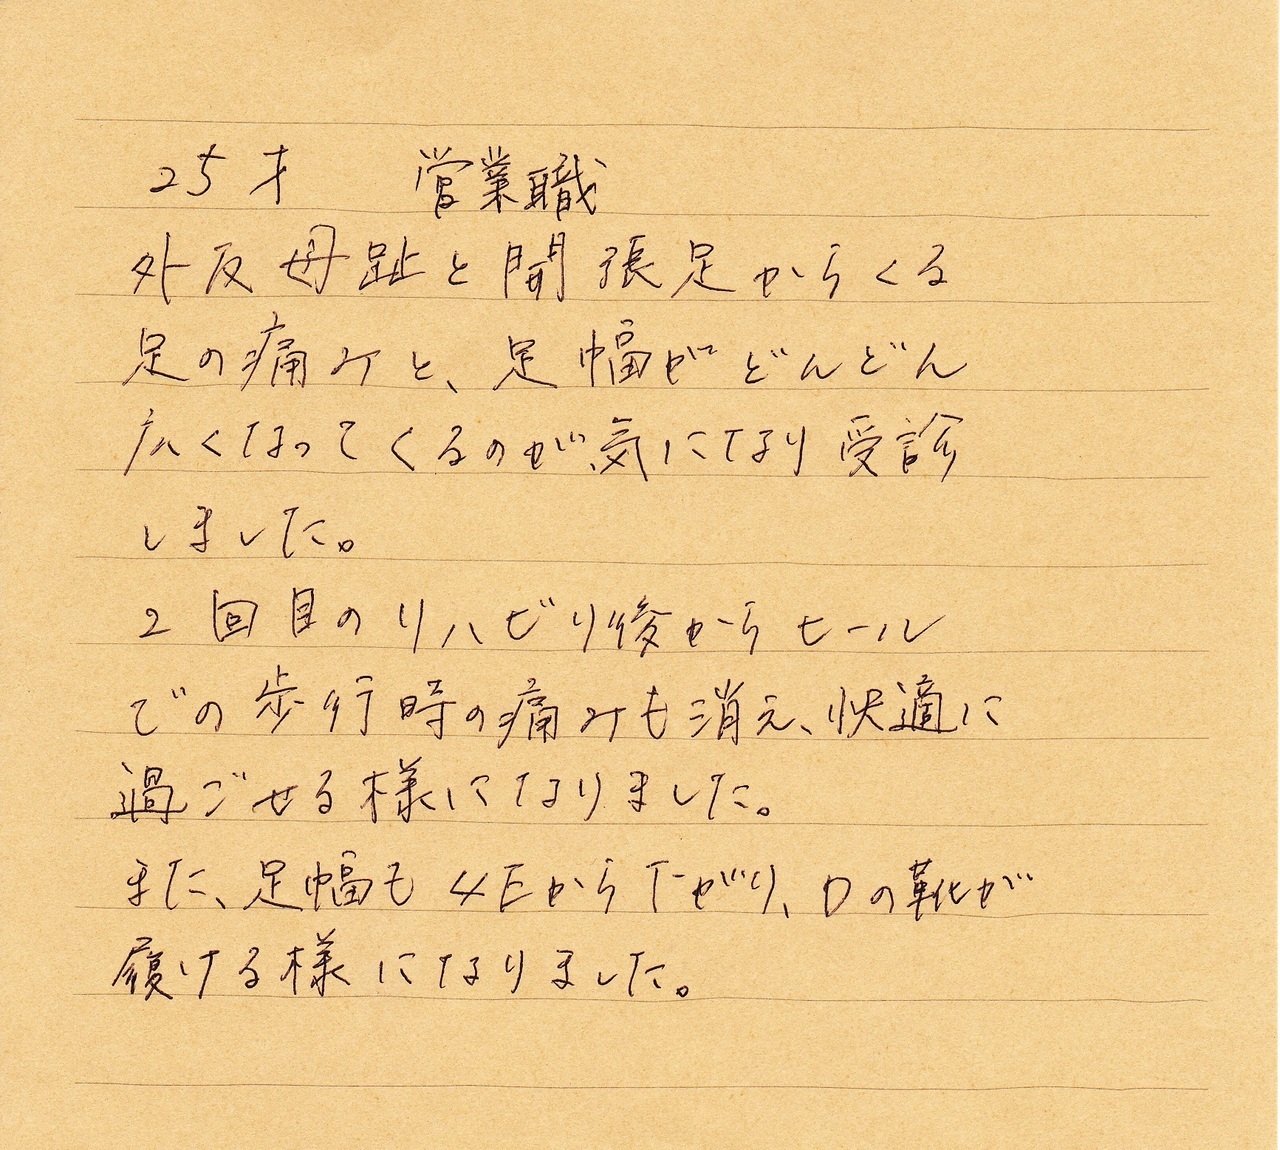 25才 営業職
外反母趾と開張足からくる
足の痛みと、足幅がどんどん
広くなってくるのが気になり受診
しました。
2回目のリハビリ後からヒール
での歩行時の痛みも消え、快適に
過ごせる様になりました。
また、足幅も4Eから下がり、Dの靴が
履ける様になりました。